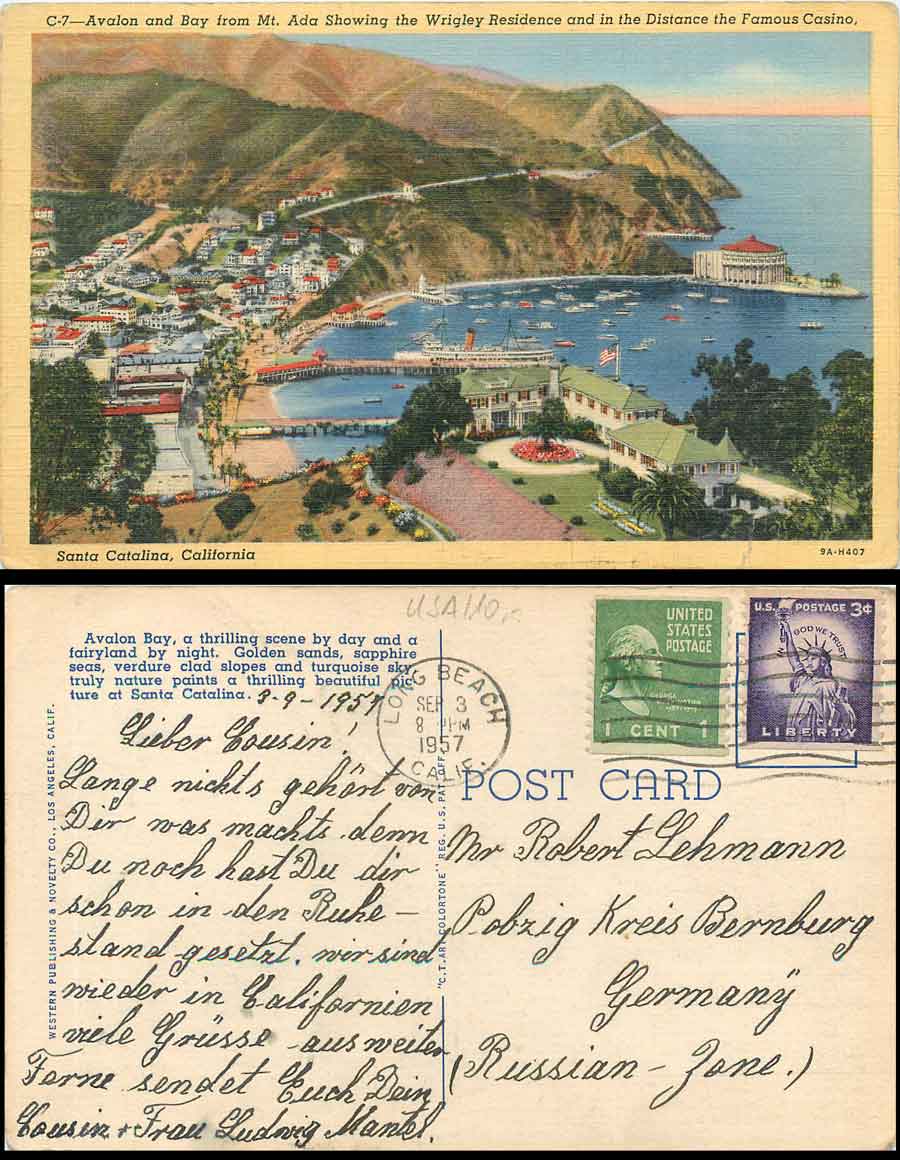 C-7—Avalon and Bay from Mt. Ada Showing the Wrigley Residence and in the Distance the Famous Casino,
Santa Catalina, California
9A-H407
USA/10
Avalon Bay, a thrilling scene by day and a
fairyland by night. Golden sands, sapphire
seas, verdure clad slopes and turquoise sky,
truly nature paints a thrilling beautiful pic-
ture at Santa Catalina.
3-9-1957
Lieber Cousin!
Lange nichts gehört von
Dir was machts denn
Du noch hast Du dir
schon in den Ruhe-
stand gesetzt. wir sind
wieder in Californien
viele Grüsse aus weiter
Ferne sendet Euch Dein
Cousin + Frau Ludwig Mantel.
WESTERN PUBLISHING & NOVELTY CO., LOS ANGELES, CALIF.
"C.T. ART COLORTONE" REG. U.S. PAT. OFF.
LONG BEACH
SEP 3
8 PM
1957
CALIF.
UNITED
STATES
POSTAGE
GEORGE
WASHINGTON
1 CENT 1
U.S. POSTAGE 3¢
IN GOD WE TRUST
LIBERTY
POST CARD
Mr Robert Lehmann
Pobzig Kreis Bernburg
Germany
(Russian-Zone.)